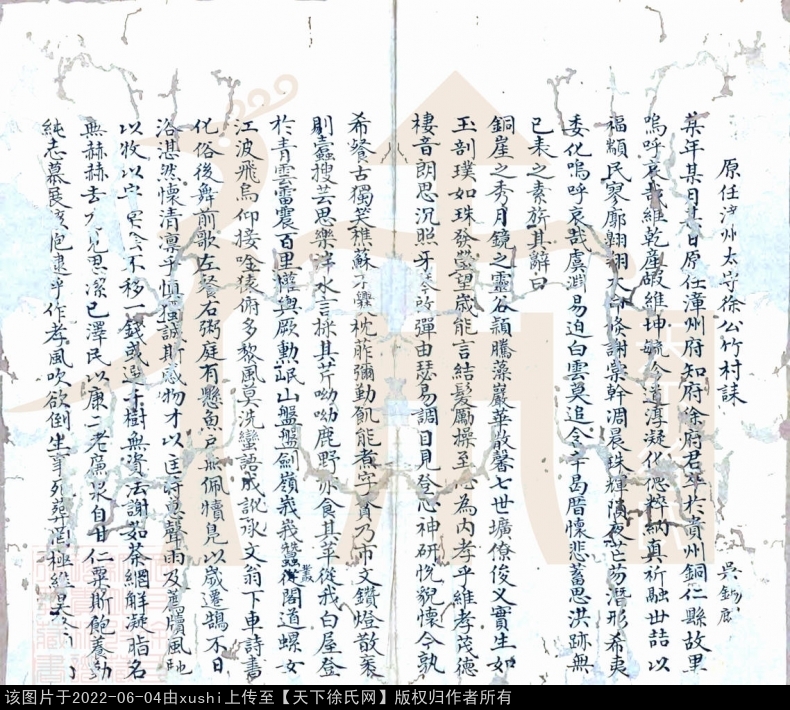 原任漳州太守徐公竹村誄
吳
某年某月某日原任漳州府知府徐府君卒於貴州銅仁縣故里
嗚呼哀哉維乾產嘏維坤毓今道淳凝化偲粹納真祈融世喆以
福顓民寥廓翱翔大命倏謝棠幹凋晨珠輝隕忽芴潛形希夷
委化嗚呼哀哉虞淵易迫白雲莫追令辛易厝懷悲蓄思洪跡無
已表之素旂其辭曰
銅崖之秀月鏡之靈谷穎騰藻巖華散馨七世壙僚俊乂實生如
玉剖璞如珠發瑩望歲能言結髮勵操至心為內孝乎維孝茂德
棲音朗思沉照牙琴改彈由瑟易調日見登心神研悅貌懷今孰
希餐古獨笑樵蘇不爨枕葄彌勤飢能煮字貧乃市文鑽燈散袠
剬蠹搜芸思樂泮水言採其芹呦呦鹿野亦食其苹從我白屋登
於青雲雷震百里權輿厥勳岷山盤盤劍嶺峩峩蠶叢閣道螺女
江波飛烏仰接啼猿俯多黎風莫洗蠻語成訛承文翁下車詩書
化俗後舞前歌左餐右粥庭有懸魚戶無佩犢見以歲遷鵲不日
洛湛然懷清凛乎慎獨誠斯感物才以匡時惠聲雨及薦牘風馳
以牧以守 不移一錢或選千樹無資法謝茹茶網解凝脂名
無赫赫去 見思潔己澤民以康二老廉泉自甘仁粟斯飽養勤
純志慕展 逮乎作孝風吹欲倒生事死葬罔極維昊
該图片于2022-06-04由xushi上传至【天下徐氏网】版权归作者所有